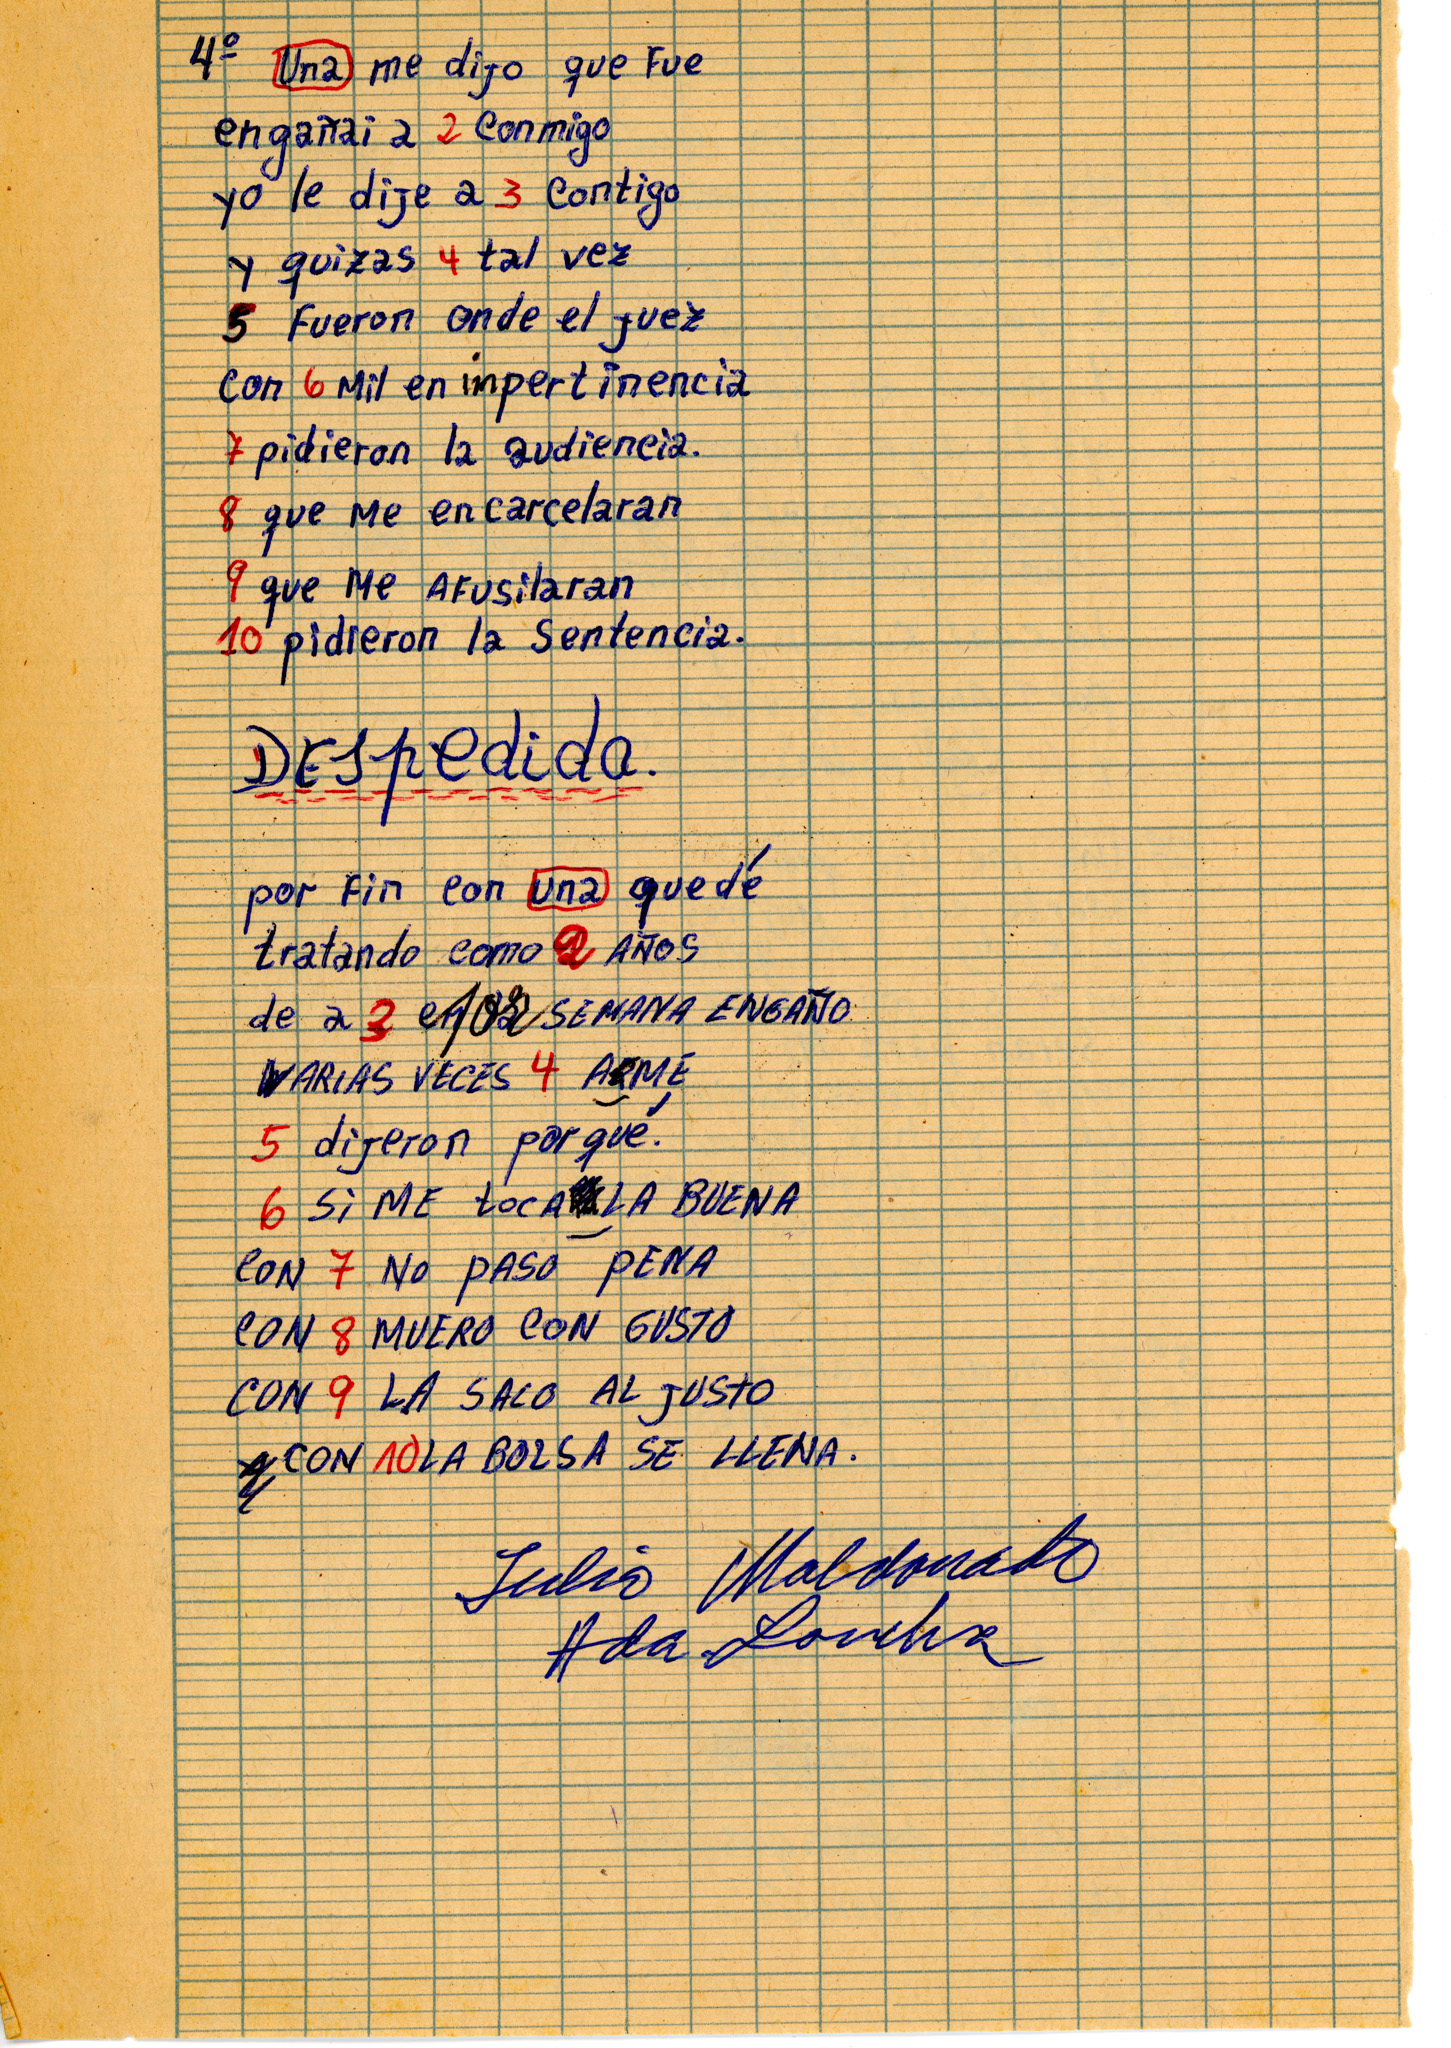 4º Una me dijo que Fue
engañai a 2 conmigo
yo le dije a 3 contigo
y quizas 4 tal vez
5 Fueron onde el juez
con 6 Mil en impertinencia
7 pidieron la audiencia.
8 que Me encarcelaran
9 que Me AFusilaran
10 pidieron la Sentencia.
DESpedida.
por Fin con una quedé
tratando como 2 AÑOS
de a 3 en SEMANA ENGAÑO
VARIAS VECES 4 ARME
5 dijeron porqué.
6 Si ME tocA LA BUENA
CON 7 NO PASO PENA
CON 8 MUERO CON GUSTO
CON 9 LA SACO AL JUSTO
y CON 10 LA BOLSA SE LLENA.
Julio Maldonado
Ada